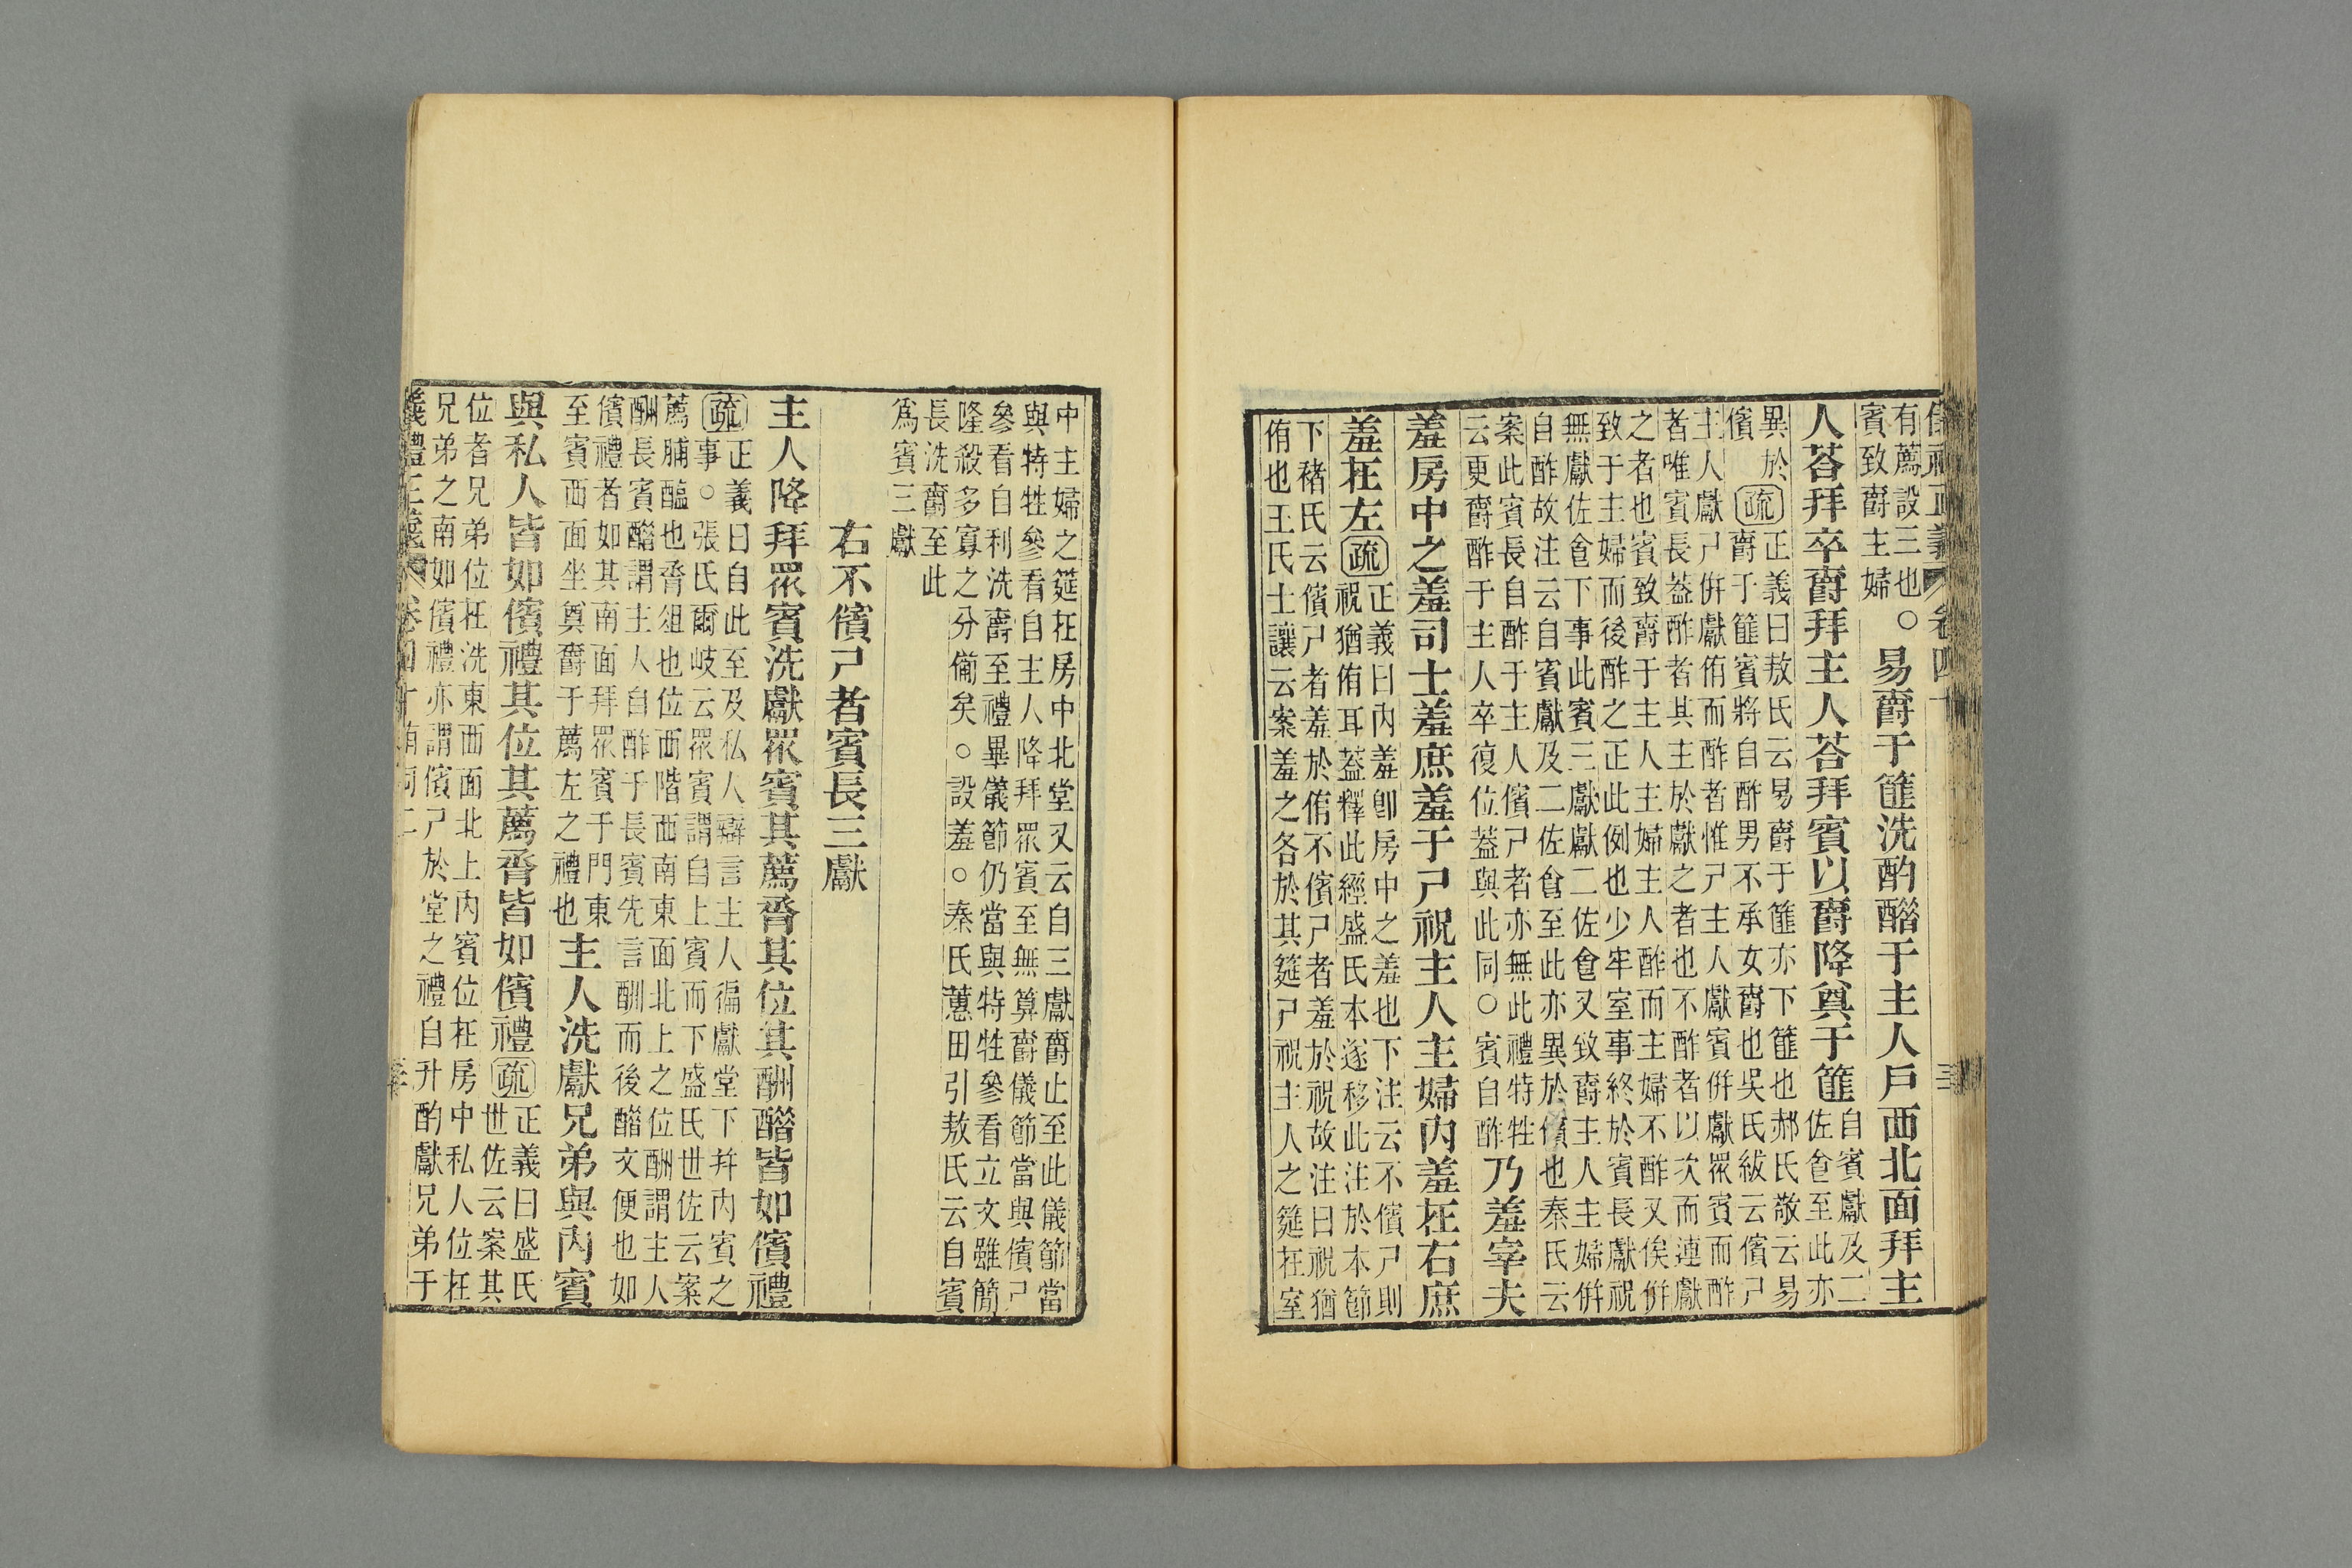 有薦設三也○
賓致爵主婦
易爵于篚洗酌醋于主人戶西北面拜主
人荅拜卒爵拜主人荅拜賓以爵降奠于篚
自賓獻及二
佐食至此亦
異於
儐
疏
正義曰敖氏云易爵于篚亦下篚也郝氏敬云易
爵于篚賓將自酢男不承女爵也吳氏紱云儐尸
主人獻尸併獻侑而酢者惟尸主人獻賓併獻眾賓而酢
者唯賓長蓋酢者其主於獻之者也不酢者以次而連獻
之者也賓致爵于主人主婦主人酢而主婦不酢又俟併
致于主婦而後酢之正此例也少牢室事終於賓長獻祝
無獻佐食下事此賓三獻獻二佐食又致爵主人主婦併
自酢故注云自賓獻及二佐食至此亦異於儐也秦氏云
案此賓長自酢于主人儐尸者亦無此禮特牲
云更爵酢于主人卒復位蓋與此同○賓自酢
乃羞宰夫
羞房中之羞司士羞庶羞于尸祝主人主婦內羞在右庶
羞在左疏
正義曰內羞卽房中之羞也下注云不儐尸則
祝猶侑耳蓋釋此經盛氏本遂移此注於本節
下褚氏云儐尸者羞於侑不儐尸者羞於祝故注曰祝猶
侑也王氏士讓云案羞之各於其筵尸祝主人之筵在室
中主婦之筵在房中北堂又云自三獻爵止至此儀節當
與特牲參看自主人降拜眾賓至無算爵儀節當與儐尸
參看自利洗爵至禮畢儀節仍當與特牲參看立文雖簡
隆殺多寡之分備矣○設羞○秦氏蕙田引敖氏云自賓
長洗爵至此
爲賓三獻
右不儐尸者賓長三獻
主人降拜眾賓洗獻眾賓其薦脀其位其酬醋皆如儐禮
疏
正義曰自此至及私人辯言主人徧獻堂下幷內賓之
事○張氏爾岐云眾賓謂自上賓而下盛氏世佐云案
薦脯醢也脀俎也位西階西南東面北上之位酬謂主人
酬長賓醋謂主人自酢于長賓先言酬而後醋文便也如
儐禮者如其南面拜眾賓于門東
至賓西面坐奠爵于薦左之禮也
主人洗獻兄弟與內賓
與私人皆如儐禮其位其薦脀皆如儐禮疏
正義曰盛氏
世佐云案其
位者兄弟位在洗東西面北上內賓位在房中私人位在
兄弟之南如儐禮亦謂儐尸於堂之禮自升酌獻兄弟于